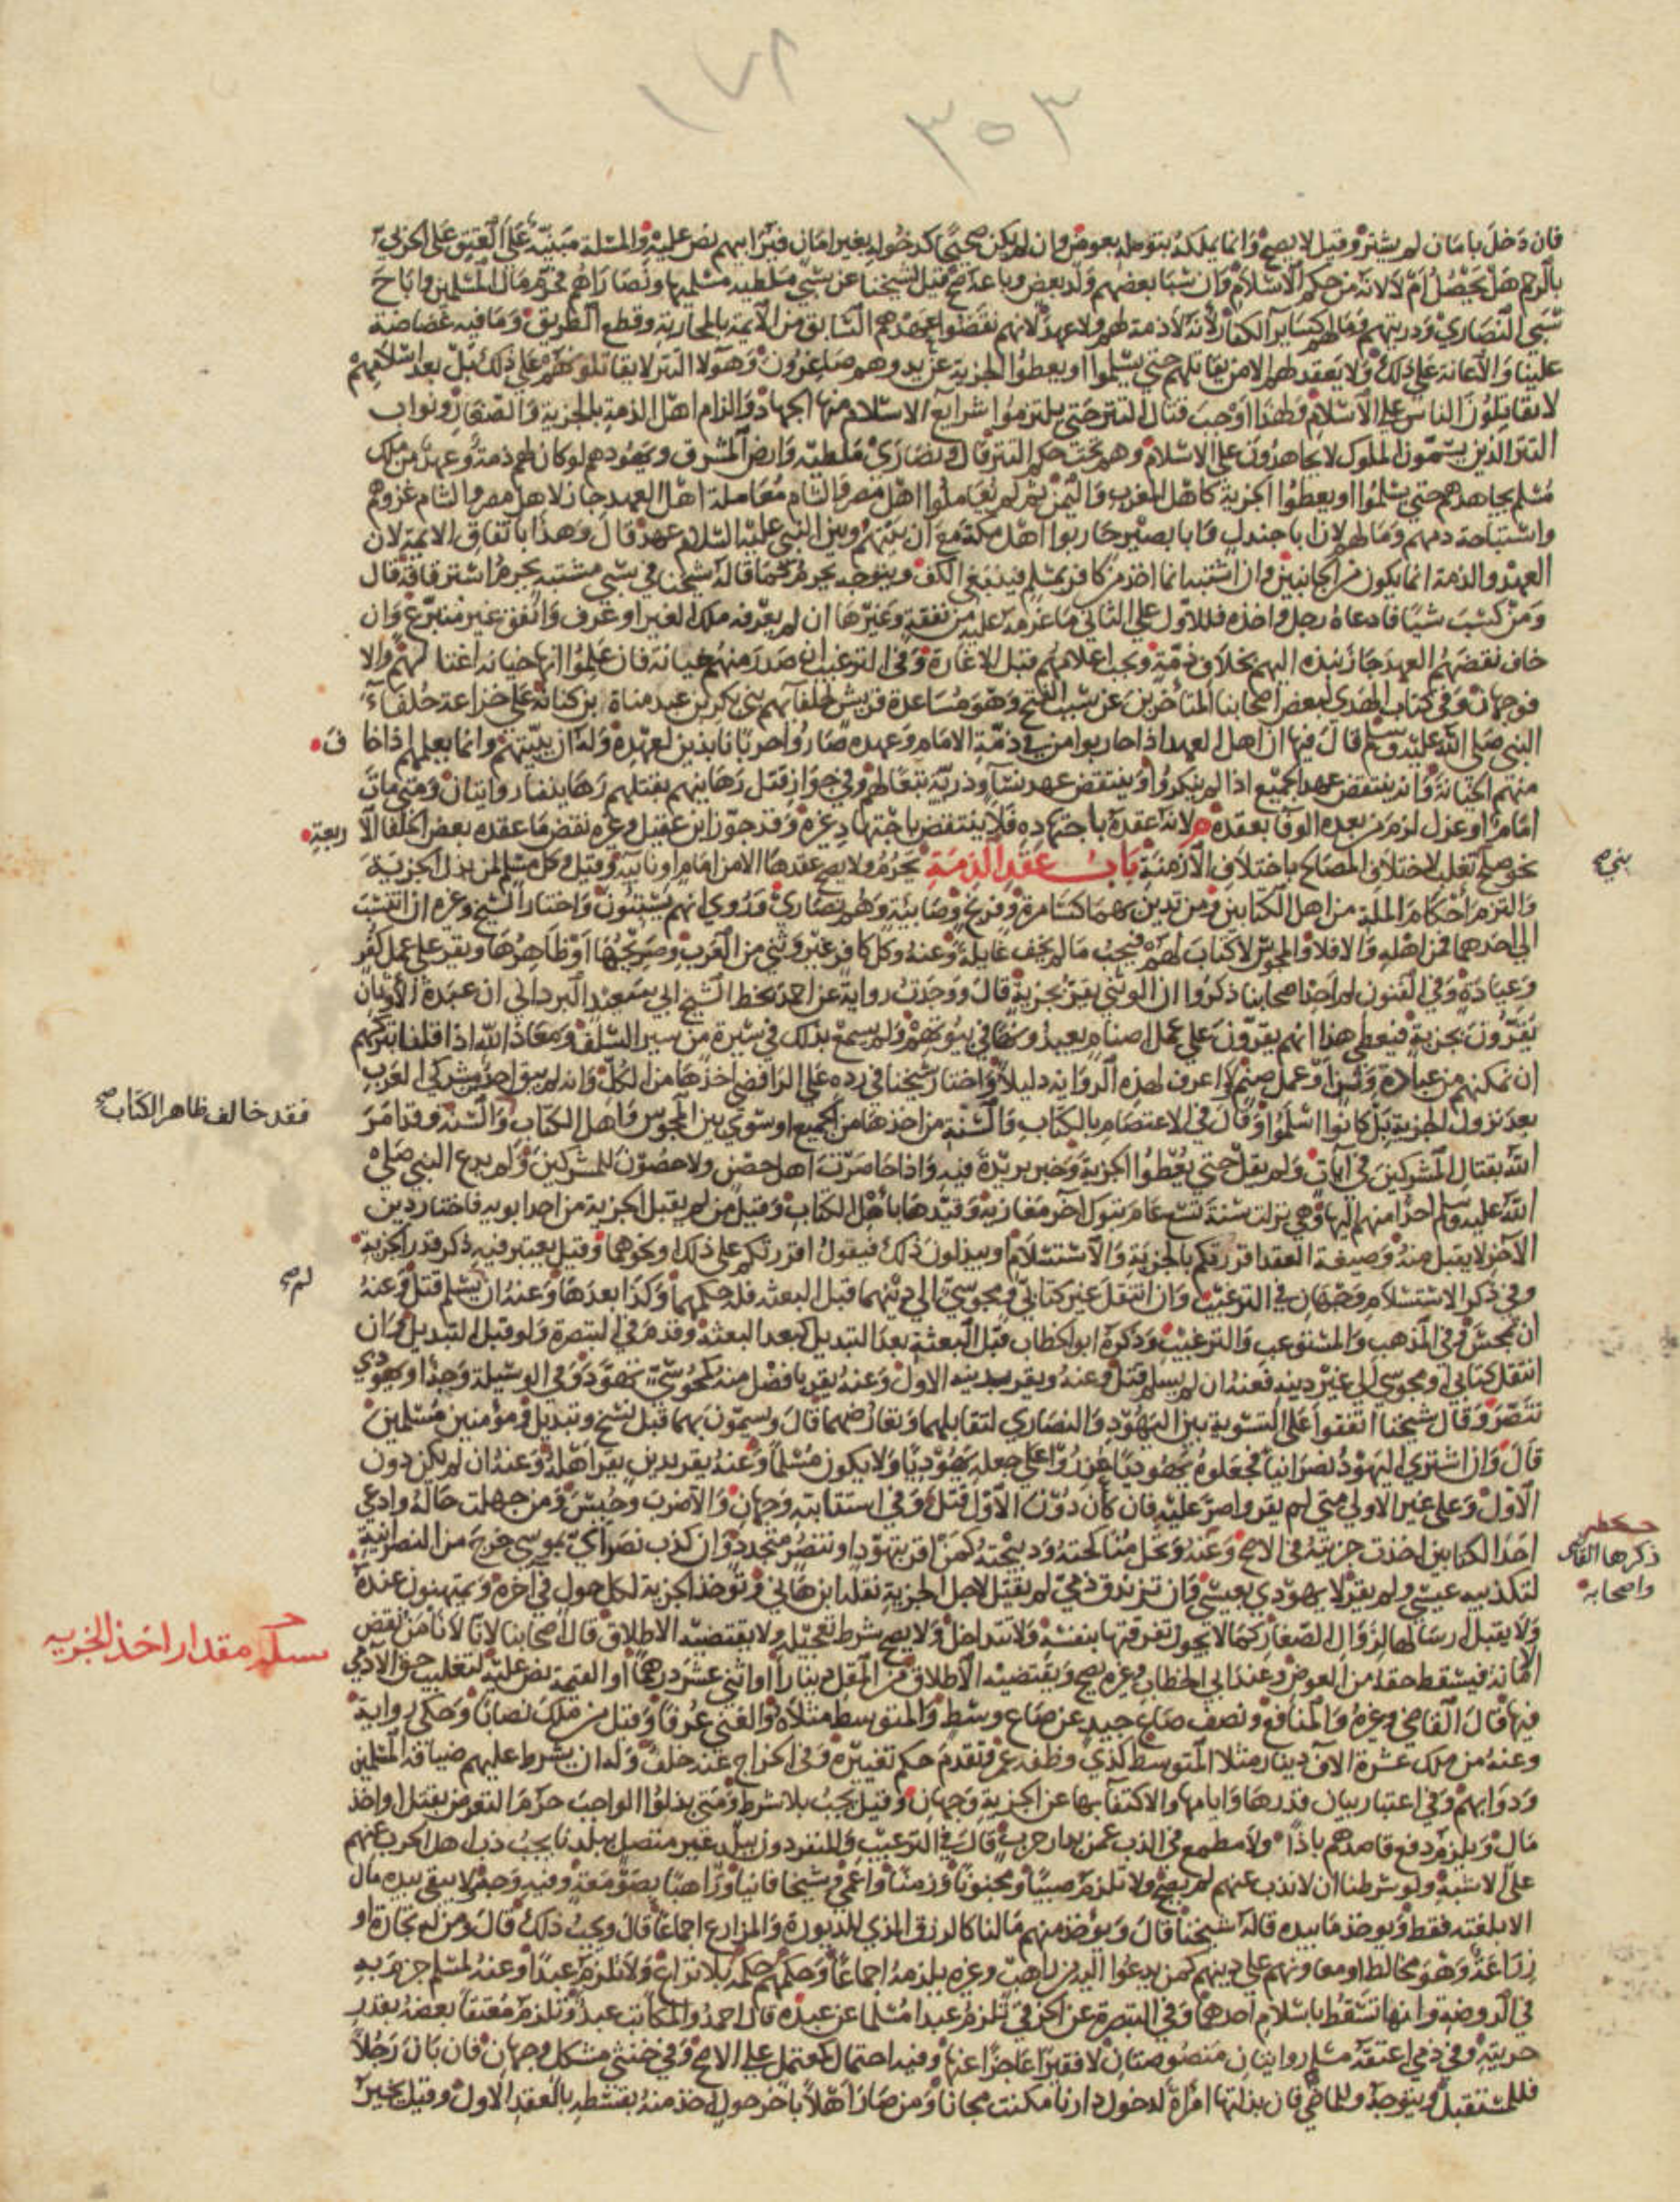 ١٧٢
٣٥٣
فان دخل بامان لم يشتر وقيل لا يصح وانما يملكه بتوصله بعوض وان لم يكن صحيحا كدخوله بغير امان فيرا بهم نص عليه والمسئلة مبنية على العتق على الحربي
بالرحم هل يحصل ام لا لانه من حكم الاسلام وان سبا بعضهم ولد بعض وباعه صح قيل لشيخنا عن سبي ملطيه مسلميها ونصاراها فحرم مال المسلمين واباح
سبي النصاري وذريتهم ومالهم كساير الكفار لانه لا ذمة لهم ولا عهد لانهم نقضوا عهدهم السابق من الائمة بالمحاربة وقطع الطريق وما فيه غضاضة
علينا والاعانة على ذلك ولا يعقد لهم الا من يقاتلهم حتى يسلموا او يعطوا الجزية عن يد وهم صاغرون وهولا التتر لا يقاتلوهم على ذلك بل بعد اسلامهم
لا يقاتلون الناس على الاسلام ولهذا وجب قتال التتر حتى يلتزموا شرايع الاسلام منها الجهاد والزام اهل الذمة بالجزية والصغار ونواب
التتر الذين يسمون الملوك لا يجاهدون على الاسلام وهم تحت حكم التتر قال ونصارى ملطيه وارض المشرق ويهودهم لو كان لهم ذمة وعهد من ملك
مسلم يجاهدهم حتى يسلموا او يعطوا الجزية كاهل المغرب واليمن ثم لم يعاملوا اهل مصر والشام معاملة اهل العهد جاز لاهل مصر والشام غزوهم
واستباحة دمهم ومالهم لان ابا جندل وابا بصير حاربوا اهل مكة مع ان بينهم وبين النبي عليه السلام عهد قال وهذا باتفاق الائمة لان
العهد والذمة انما يكون من الجانبين وان اشتبه انما اخذ من كافر بمسلم فينبغي الكف ويتوجه يحرم كما قاله شيخنا في سبي مشتبه يحرم استرقاقه قال
ومن كسب شيا فادعاه رجل واخذه فللاول على الثاني ما غرمه عليه من نفقة وغيرها ان لم يعرفه ملك الغير او عرف وانفق غير متبرع وان
خاف نقضهم العهد جاز نبذه اليهم بخلاف ذمة ويجب اعلامهم قبل الاغارة وفي الترغيب ان صدر منهم خيانة فان علموا انها خيانة اغتالهم والا
فوجهان وفي كتاب الهدي لبعض اصحابنا المتأخرين عن سبب الفتح وهو مساعدة قريش لحلفآئهم بني بكر بن عبد مناة بن كنانة على خزاعة حلفاء
النبي صلى الله عليه وسلم قال فيها ان اهل العهد اذا حاربوا من في ذمة الامام وعهده صاروا حربا نابذين لعهده وله ان يبيتهم وانما يعلمهم اذا خاف
منهم الخيانة وانه ينتقض عهد الجميع اذا لم ينكروا وينتقض عهد نسآء وذرية تبعا لهم وفي جواز قتل رهاينهم بقتلهم رهاينا روايتان ومتى مات
امام او عزل لزم من بعده الوفا بعقده لانه عقده باجتهاده فلا ينتقض باجتهاد غيره وقد جوز ابن عقيل وغيره نقض ما عقده بعض الخلفا الاربعة
بني صح
نحو صلح تغلب لاختلاف المصالح باختلاف الازمنة باب عقد الذمة يحرم ولا يصح عقدها الا من امام او نائبه وقيل وكل مسلم لمن بذل الجزية
والتزم احكام الملة من اهل الكتابين ومن تدين بهما كسامرة وفرنج وصابئة وهم نصاري وروي انهم يسبتون واختار الشيخ وغيره ان انتسب
الى احدهما فمن اهله والا فلا والمجوس لا كتاب لهم فيجب ما لم يخف غايلة وعنه وكل كافر غير وثني من العرب وصريحها او ظاهرها ويقر على عمل كفر
وعبادة وفي الفنون لم اجد اصحابنا ذكروا ان الوثني يقر بجزية قال ووجدت رواية عن احمد بخط الشيخ ابي سعد البرداني ان عبدة الاوثان
يقرون بجزية فيعطى هذا انهم يقرون على عمل اصنام يعبدونها في بيوتهم ولم يسمع بذلك في سيرة من سير السلف ومعاذ الله اذا قلنا بتركهم
ان نمكنهم من عبادة وثن او عمل صنم ولا اعرف لهذه الرواية دليلا واختار شيخنا في رده على الرافضي اخذها من الكل وانه لم يبق احد من مشركي العرب
فقد خالف ظاهر الكتاب صح
بعد نزول الجزية بل كانوا اسلموا وقال في الاعتصام بالكتاب والسنة من اخذها من الجميع او سوى بين المجوس واهل الكتاب والسنة وقد امر
الله بقتال المشركين في ايات ولم يقل حتى يعطوا الجزية وخبر بريدة فيه واذا حاصرت اهل حصن ولا حصون للمشركين ولم يدع النبي صلى
الله عليه وسلم احدا منهم اليها وهي نزلت سنة تسع عام تبوك آخر مغازيه وقيدها باهل الكتاب وقيل من لم يقبل الجزية من احد ابويه فاختار دين
الآخر لا يقبل منه وصيغة العقد اقررتكم بالجزية والاستسلام او يبذلون ذلك فيقول اقررتكم على ذلك ونحوهما وقيل يعتبر فيه ذكر قدر الجزية
لم صح
وفي ذكر الاستسلام وجهان في الترغيب وان انتقل غير كتابي ومجوسي الى دينهما قبل البعثه فله حكمهما وكذا بعدها وعنه ان يسلم قتل وعنه
ان تمجس وفي المذهب والمستوعب والترغيب وذكره ابو الخطاب قبل البعثة بعد التبديل كبعد البعثة وقدم في التبصرة ولو قبل التبديل وان
انتقل كتابي او مجوسي الى غير دينه فعنه ان لم يسلم قتل وعنه ويقر بدينه الاول وعنه يقر بافضل منه كمجوسي تهود وفي الوسيلة وجه او يهودي
تنصر وقال شيخنا اتفقوا على التسوية بين اليهود والنصاري لتقابلهما وتعارضهما قال ويسمون بهما قبل نسخ وتبديل ومؤمنين مسلمين
قال وان اشترى اليهود نصرانيا فجعلوه يهوديا عزروا على جعله يهوديا ولا يكون مسلما وعنه يقر بدين يقر اهله وعنه ان لم يكن دون
الاول وعلى غير الاولى متى لم يقر واصر عليه فان كان دون الاول قتل وفي استتابته وجهان والا ضرب وحبس ومن جهلت حاله وادعى
حكمها
ذكرها القاضي
واصحابه
احد الكتابين اخذت جزيته في الاصح وعنه وتحل مناكحته وذبيحته كمن اقر بتهود او تنصر متجدد وان كذب نصراني بموسى خرج من النصرانية
لتكذيبه عيسى ولم يقر لا يهودي بعيسى فان تزندق ذمي لم يقتل لاجل الجزية نقله ابن هاني وتؤخذ الجزية لكل حول في آخره ويمتهنون عنده
سلم مقدار اخذ الجزيه
ولا يقبل ارسالها لزوال الصغار كما لا يجوز تفرقتها بنفسه ولا تتداخل ولا يصح شرط تعجيله ولا يقتضيه الاطلاق قال اصحابنا لانا لا نامن نقض
الامانة فيسقط حقه من العوض وعند ابي الخطاب وغيره يصح ويقتضيه الاطلاق من المقل دينارا او اثني عشر درهما او القيمة نص عليه لتغليب حق الآدمي
فيها قال القاضي وغيره والمنافع ونصف صاع جيد عن صاع وسط والمتوسط مثلاه والغني عرفا وقيل من ملك نصابا وحكى رواية
وعنه من ملك عشرة الاف دينار مثلا المتوسط كذي وظفه عمر وتقدم حكم تغييره وفي الخراج عنه خلف وله ان يشرط عليهم ضيافة المسلمين
ودوابهم وفي اعتبار بيان قدرها وايامها والاكتفا بها عن الجزية وجهان وقيل يجب بلا شرط ومتى بذلوا الواجب حرم التعرض بقتل او اخذ
مال ويلزم دفع قاصدهم باذا ولا مطمع في الذب عمن بدار حرب قال في الترغيب والمنفردون ببلد غير متصل ببلدنا يجب ذب اهل الحرب عنهم
على الاشبه ولو شرطنا ان لا نذب عنهم لم يصح ولا تلزم صبيا ومجنونا وزمنا واعمى وشيخا فانيا وراهبا بصومعة وفيه وجه ولا يبقى بيده مال
الا بلغته فقط ويوخذ ما بيده قاله شيخنا قال ويؤخذ منهم مالنا كالرزق الذي للديورة والمزارع اجماعا قال ويجب ذلك قال ومن له تجارة او
زراعة وهو مخالط او معاونهم على دينهم كمن يدعوا اليه من راهب وغيره يلزمه اجماعا وحكمهم حكمه بلا نزاع ولا تلزم عبدا وعنه لمسلم جزم به
في الروضة وانها تسقط باسلام احدهما وفي التبصرة عن الخرقي تلزم عبدا مسلما عن عبده قال احمد والمكاتب عبد وتلزم معتقا بعضه بقدر
حريته وفي ذمي اعتقه مسلم روايتان منصوصتان لا فقيرا عاجزا عنها وفيه احتمال كمعتمل على الاصح وفي خنثي مشكل وجهان فان بان رجلا
فللمستقبل ويتوجه وللماضي فان بذلتها امراة لدخول دارنا مكنت مجانا ومن صار اهلا باخر حول اخذ منه بقسطه بالعقد الاول وقيل يخير